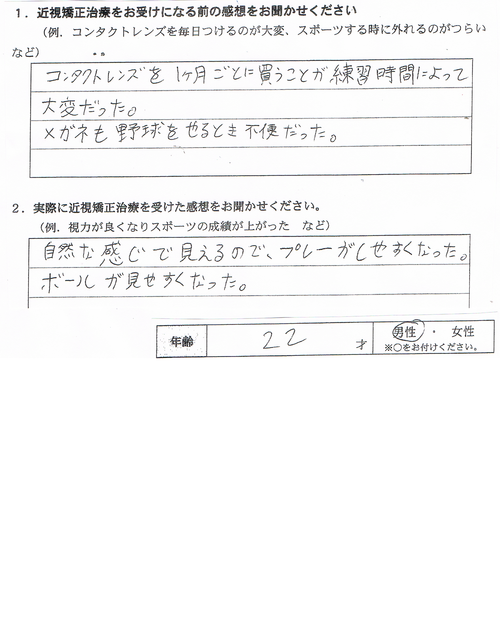 1．近視矯正治療をお受けになる前の感想をお聞かせください
（例．コンタクトレンズを毎日つけるのが大変、スポーツする時に外れるのがつらい
など）
コンタクトレンズを1ヶ月ごとに買うことが練習時間によって
大変だった。
メガネも野球をやるとき不便だった。
2．実際に近視矯正治療を受けた感想をお聞かせください。
（例．視力が良くなりスポーツの成績が上がった　など）
自然な感じで見えるので、プレーがしやすくなった。
ボールが見やすくなった。
年齢 22 才 男性 ・ 女性
※○をお付けください。